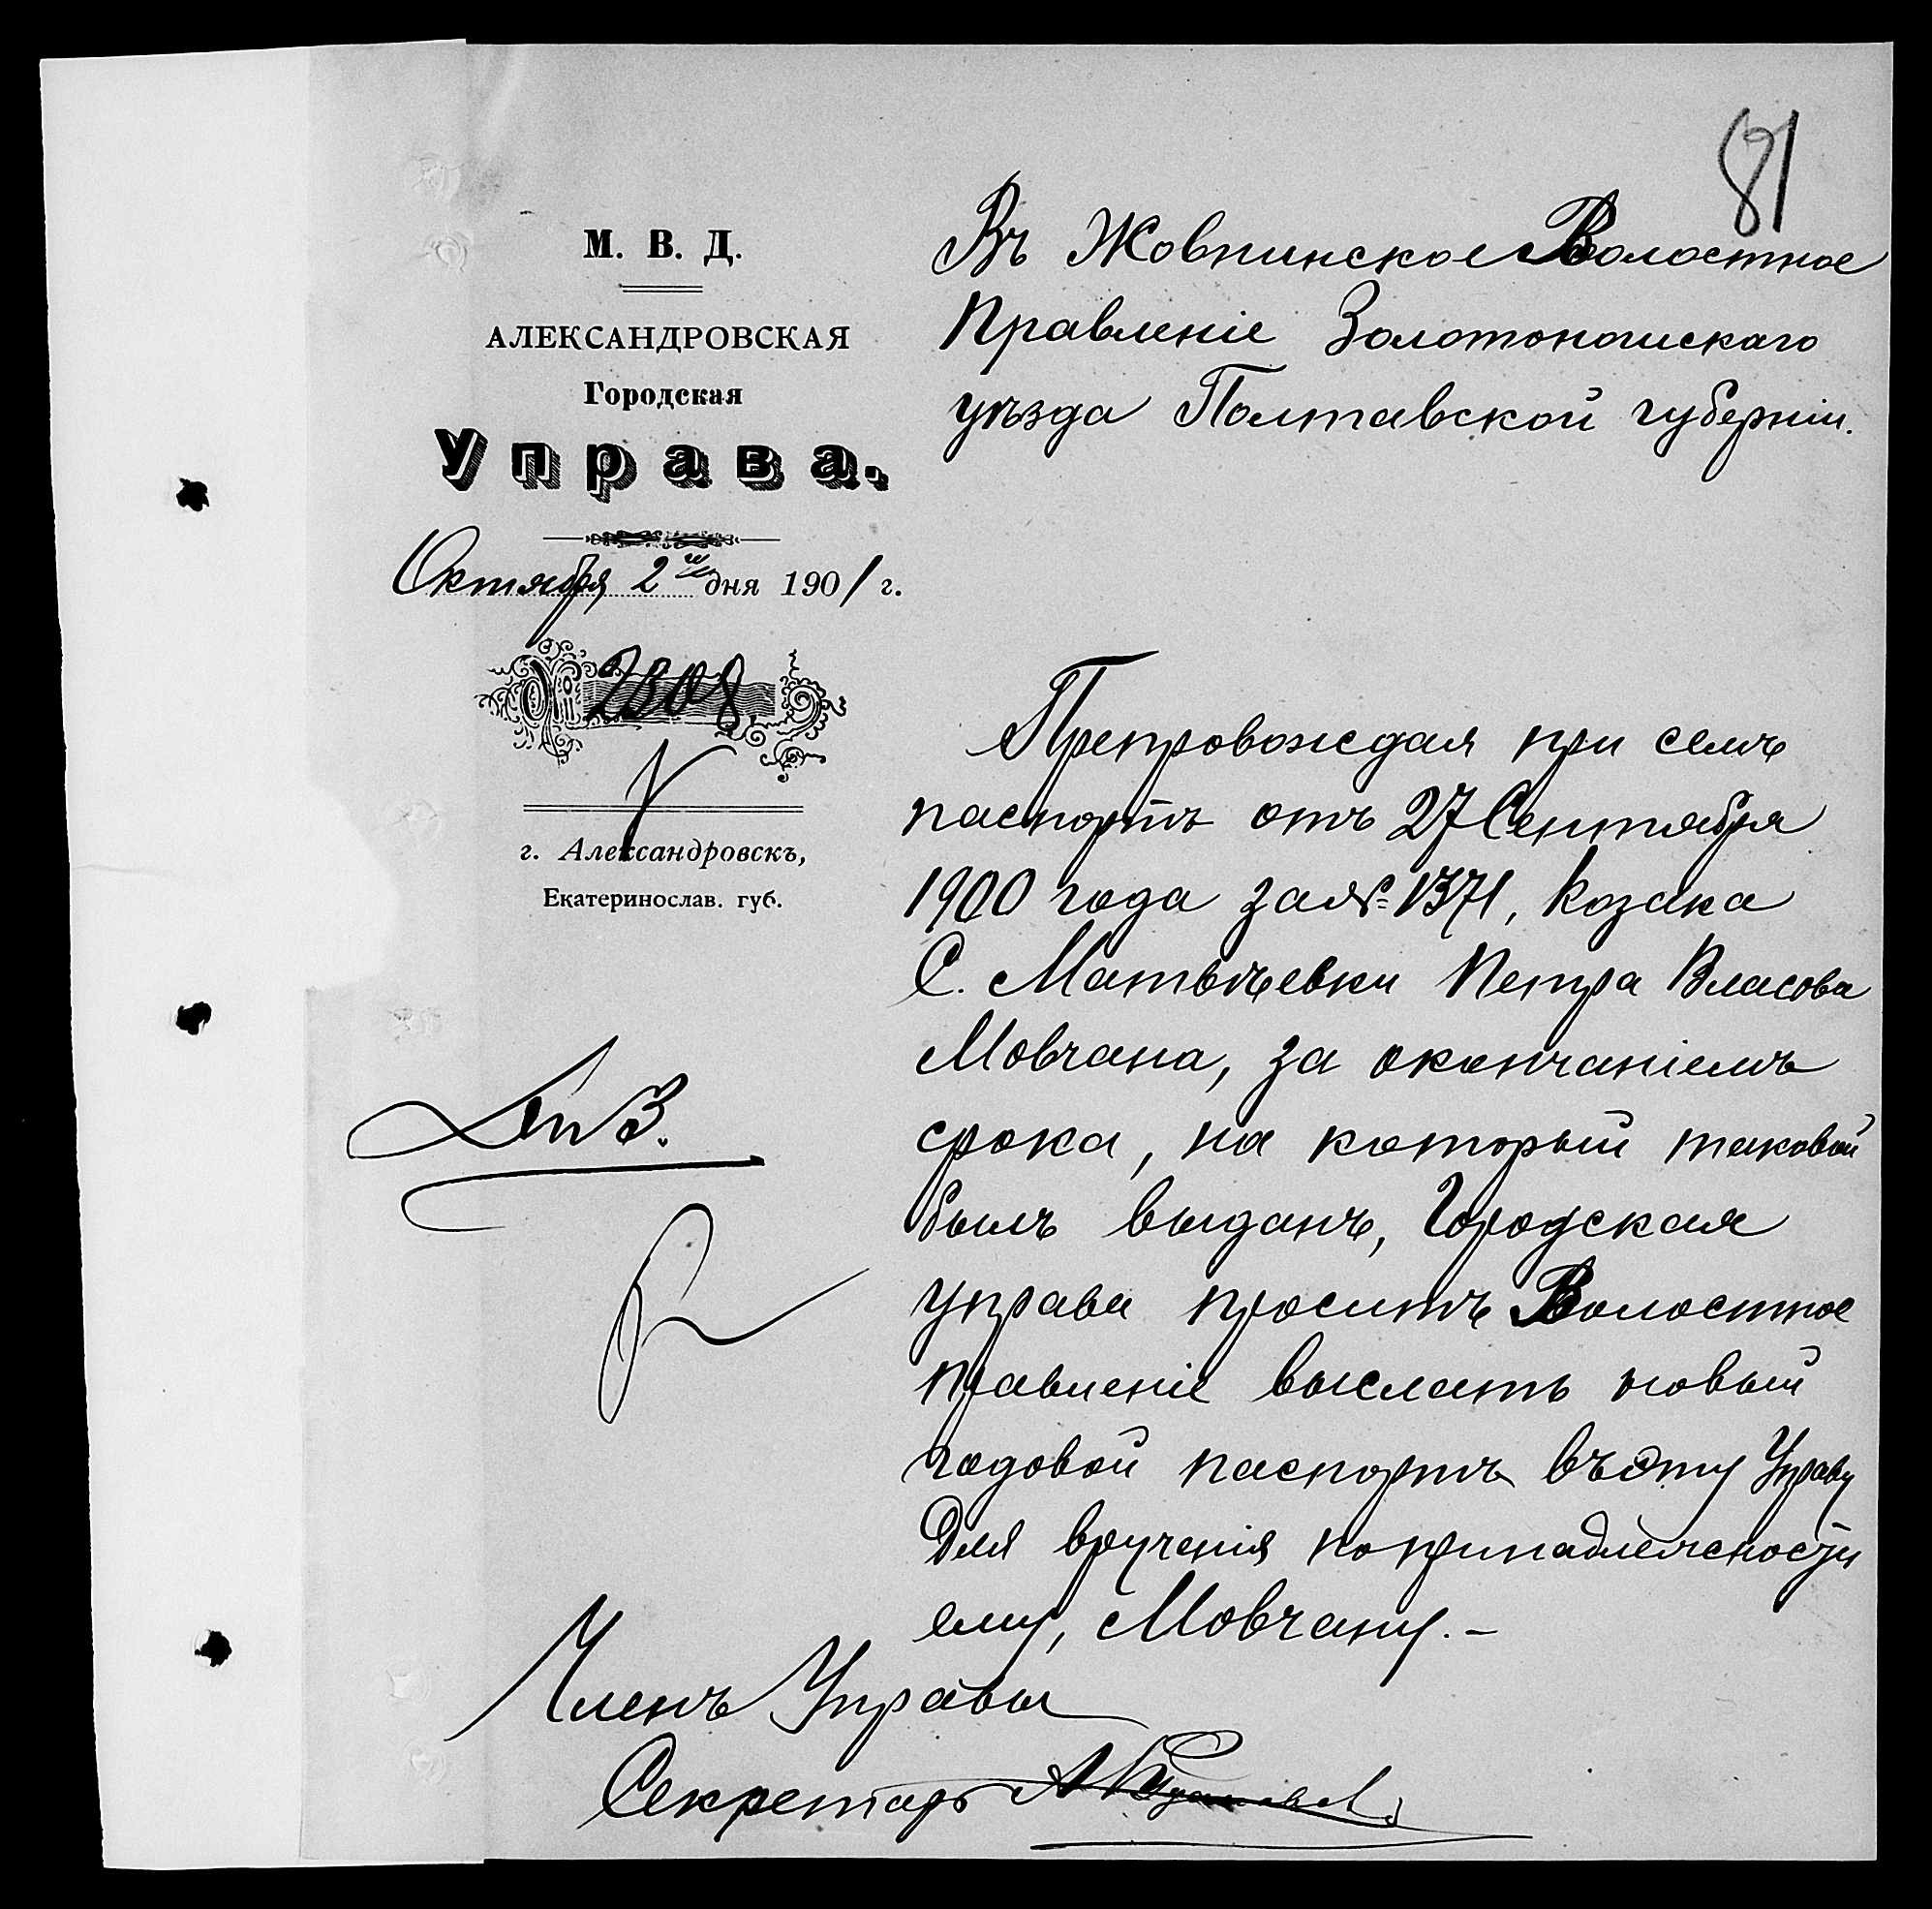 81
М. В. Д.
АЛЕКСАНДРОВСКАЯ
Городская
Управа.
Октября 2го дня 1901 г.
№ 2808
г. Александровскъ,
Екатеринослав. губ.
Въ Жовнинское Волостное
Правленіе Золотоношскаго
уѣзда Полтавской губерніи.
Препровождая при семъ
паспортъ отъ 27 Сентября
1900 года за № 1371, козака
С. Матвѣевки Петра Власова
Мовчана, за окончаніемъ
срока, на который таковой
былъ выданъ, Городская
управа проситъ Волостное
правленіе выслать новый
годовой паспортъ въ эту Управу
для врученія по принадлежности
ему, Мовчану.-
Членъ Управы
Секретарь А